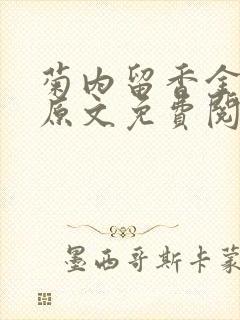 菊内留香全
原文免费阅
墨西哥斯卡蒙